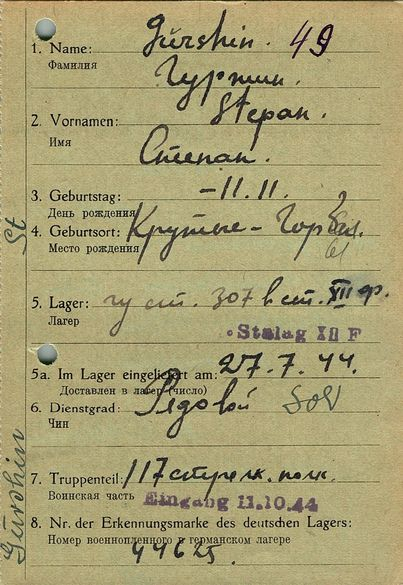 1. Name: Gürshin. 49
Фамилия Гуршин.
2. Vornamen: Stepan.
Имя Степан.
3. Geburtstag: -11.11.
День рождения
4. Geburtsort: Крутые-
Место рождения
5. Lager: ст. 307 в ст. XII
Лагер
Stalag XII F
5a. Im Lager eingeliefert am: 27.7.44.
Доставлен в лагер (число)
6. Dienstgrad: Рядовой Sol
Чин
7. Truppenteil: 117 стрелк. полк.
Воинская часть Eingang 11.10.44
8. Nr. der Erkennungsmarke des deutschen Lagers:
Номер военнопленного в германском лагере
44625.
St
Gürshin